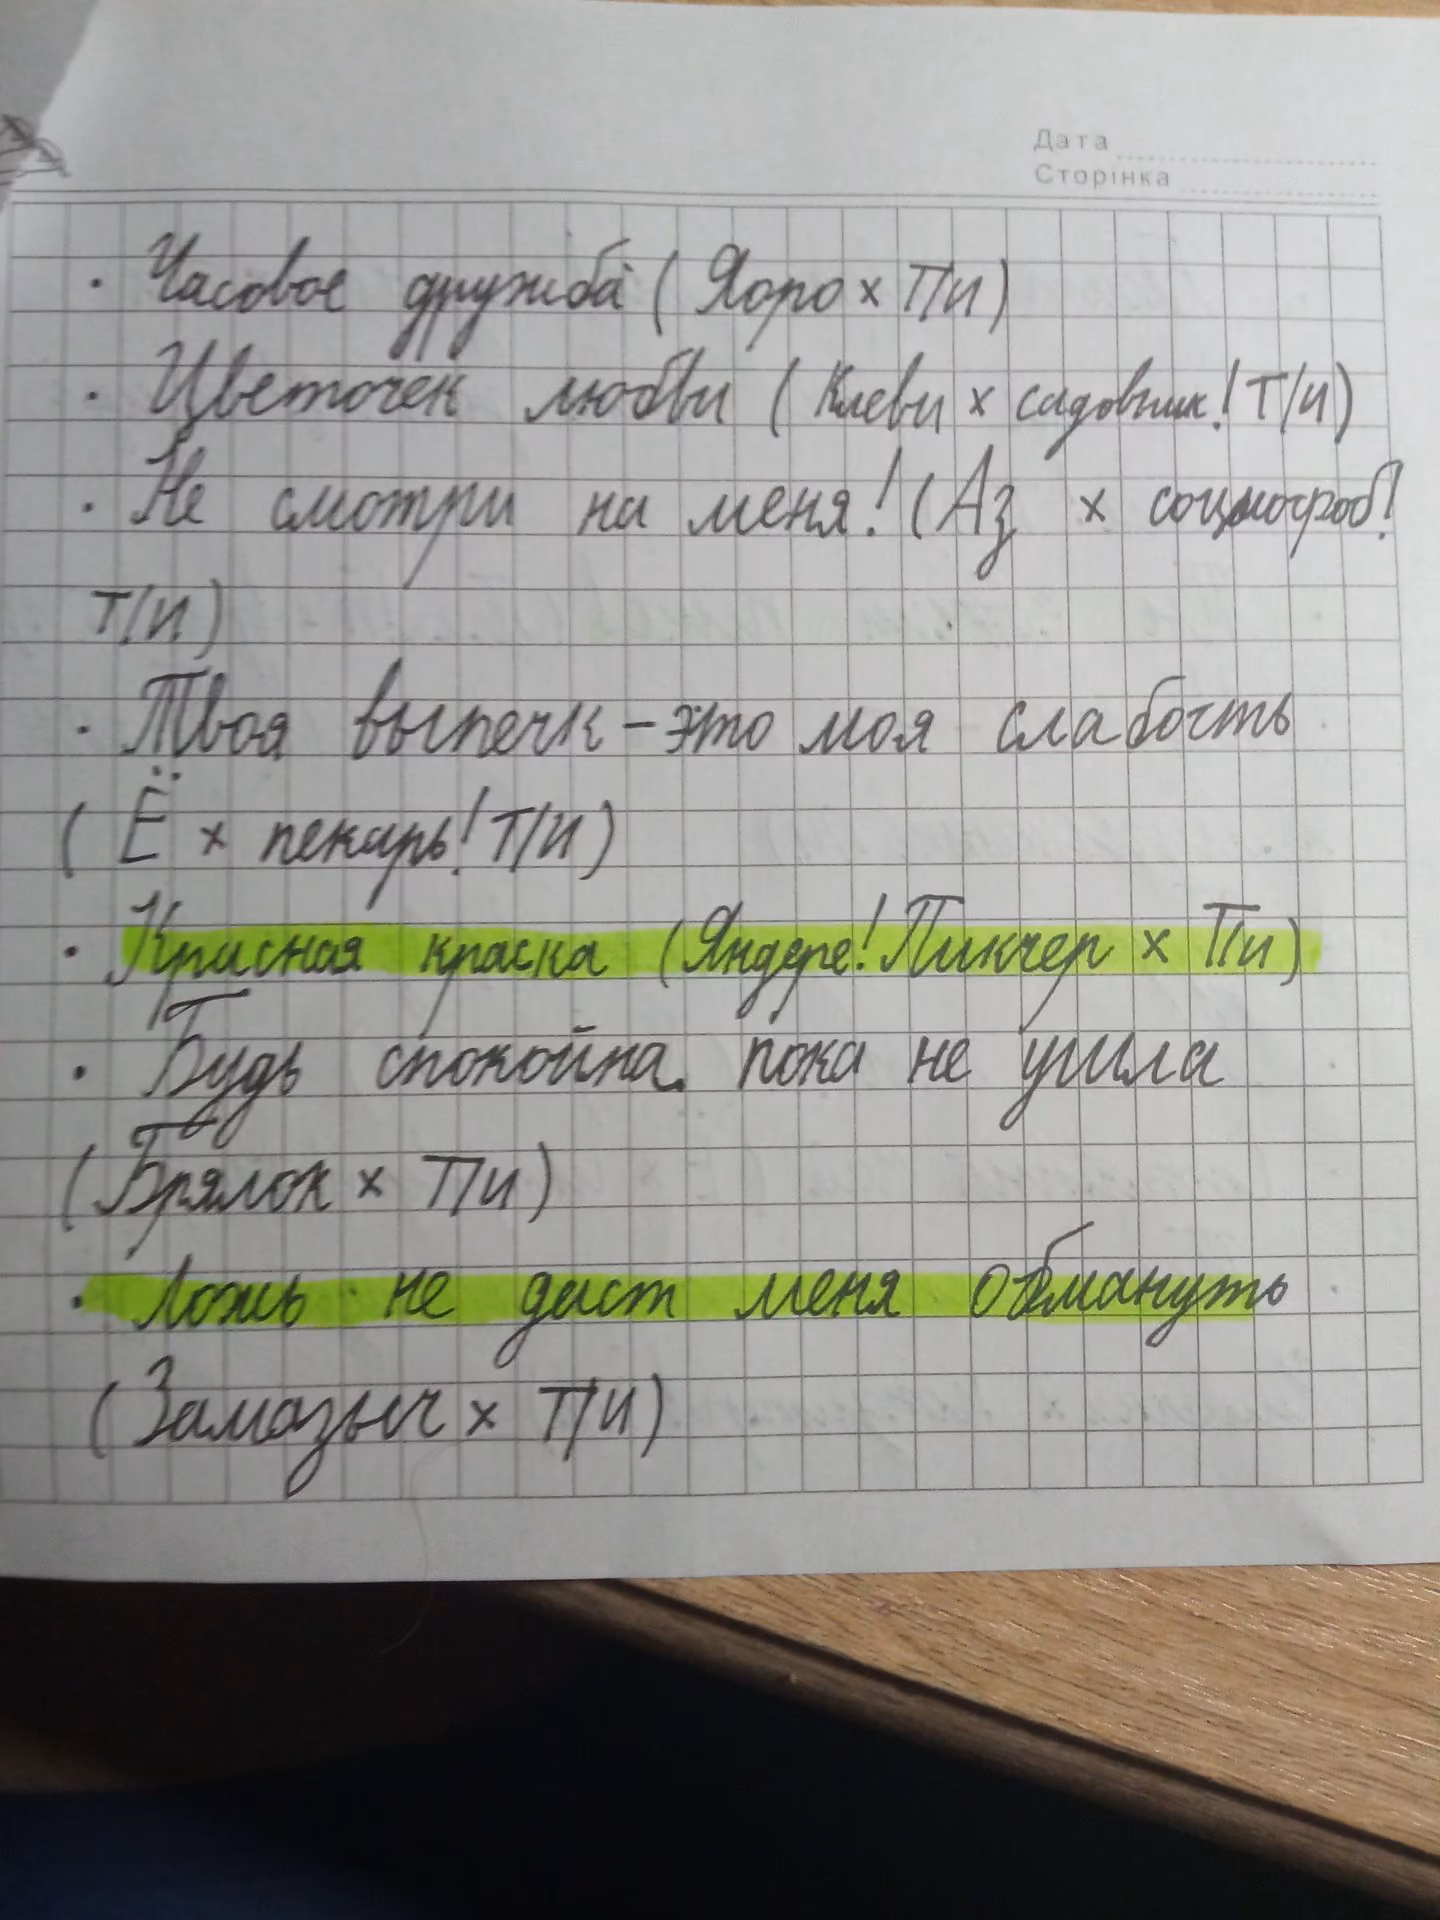 Дата
Сторінка
· Часовое дружба (Яоро х Т/И)
· Цветочек любви (Клеви х садовник! Т/И)
· Не смотри на меня! (Аз х социофоб!
Т/И)
· Твоя выпечк - это моя слабость
(Ё х пекарь! Т/И)
· Красная краска (Яндере! Пикчер х Т/И)
· Будь спокойна. пока не ушла
(Брялок х Т/И)
· Ложь не даст меня обмануть
(Замазыч х Т/И)